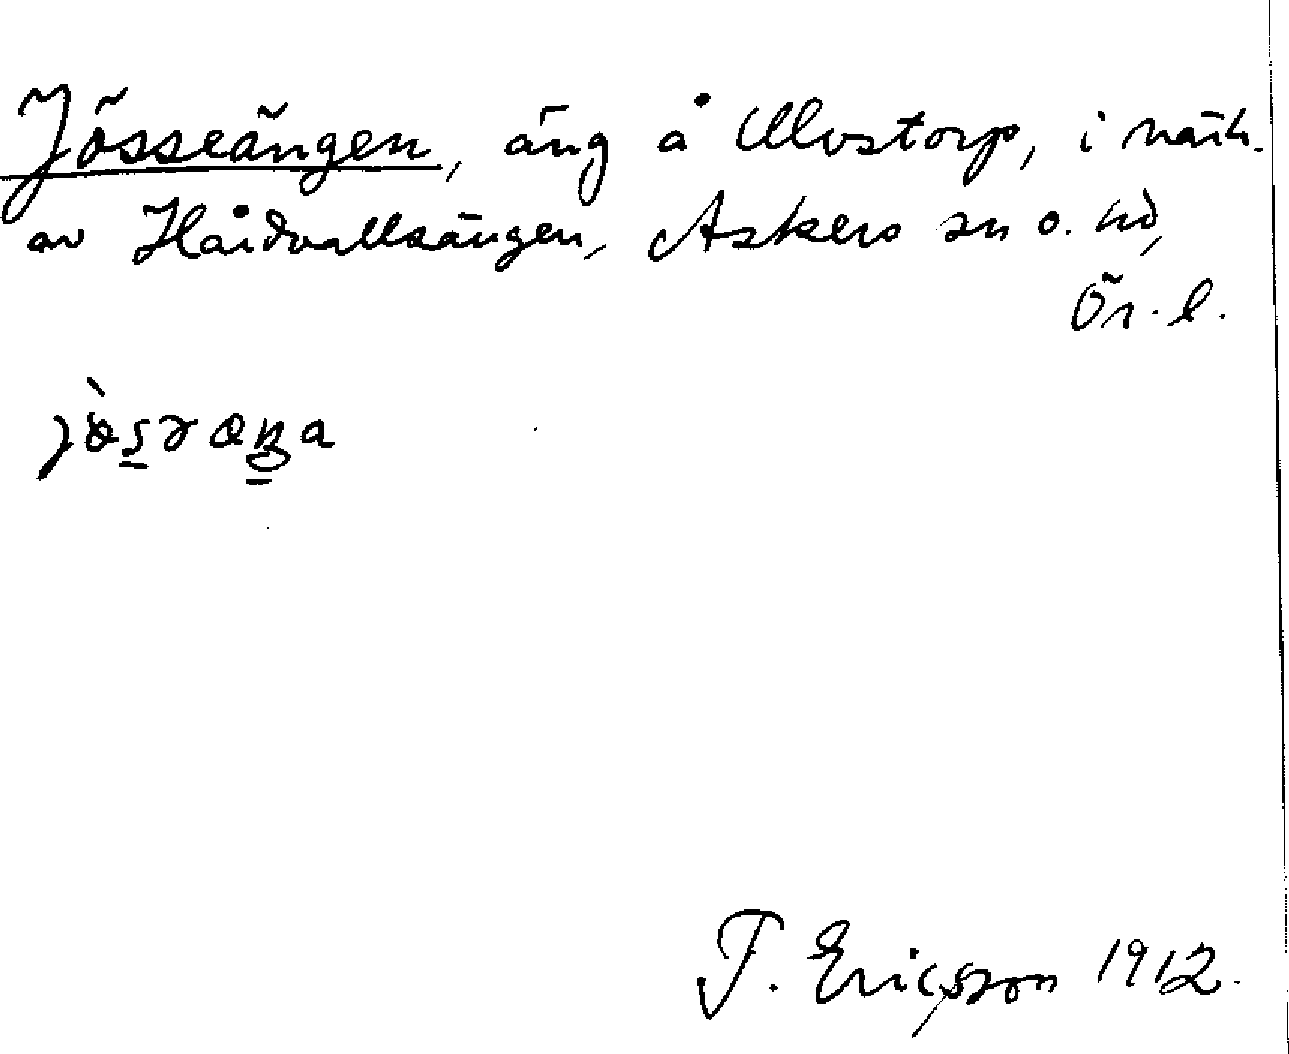 Jösseängen, äng å Ulvstorp, i närh.
av Hårdvallsängen, Askers sn o. hd,
Ör. l.
T. Ericsson 1912.